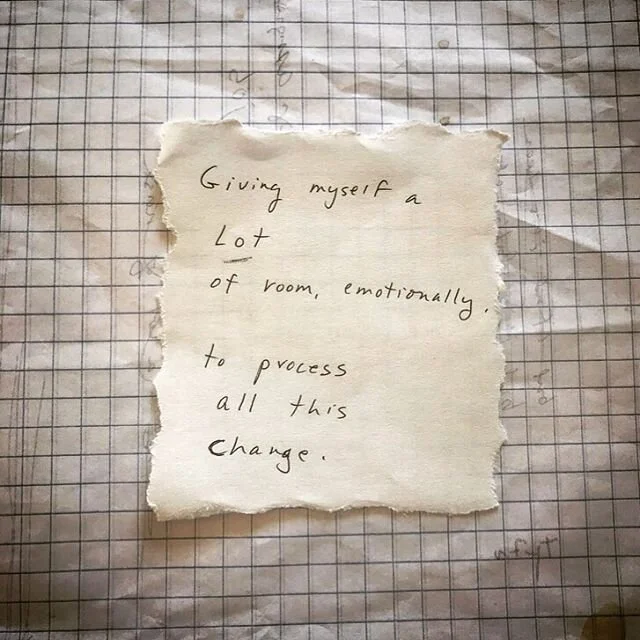 Giving myself a
Lot
of room, emotionally,
to process
all this
Change.